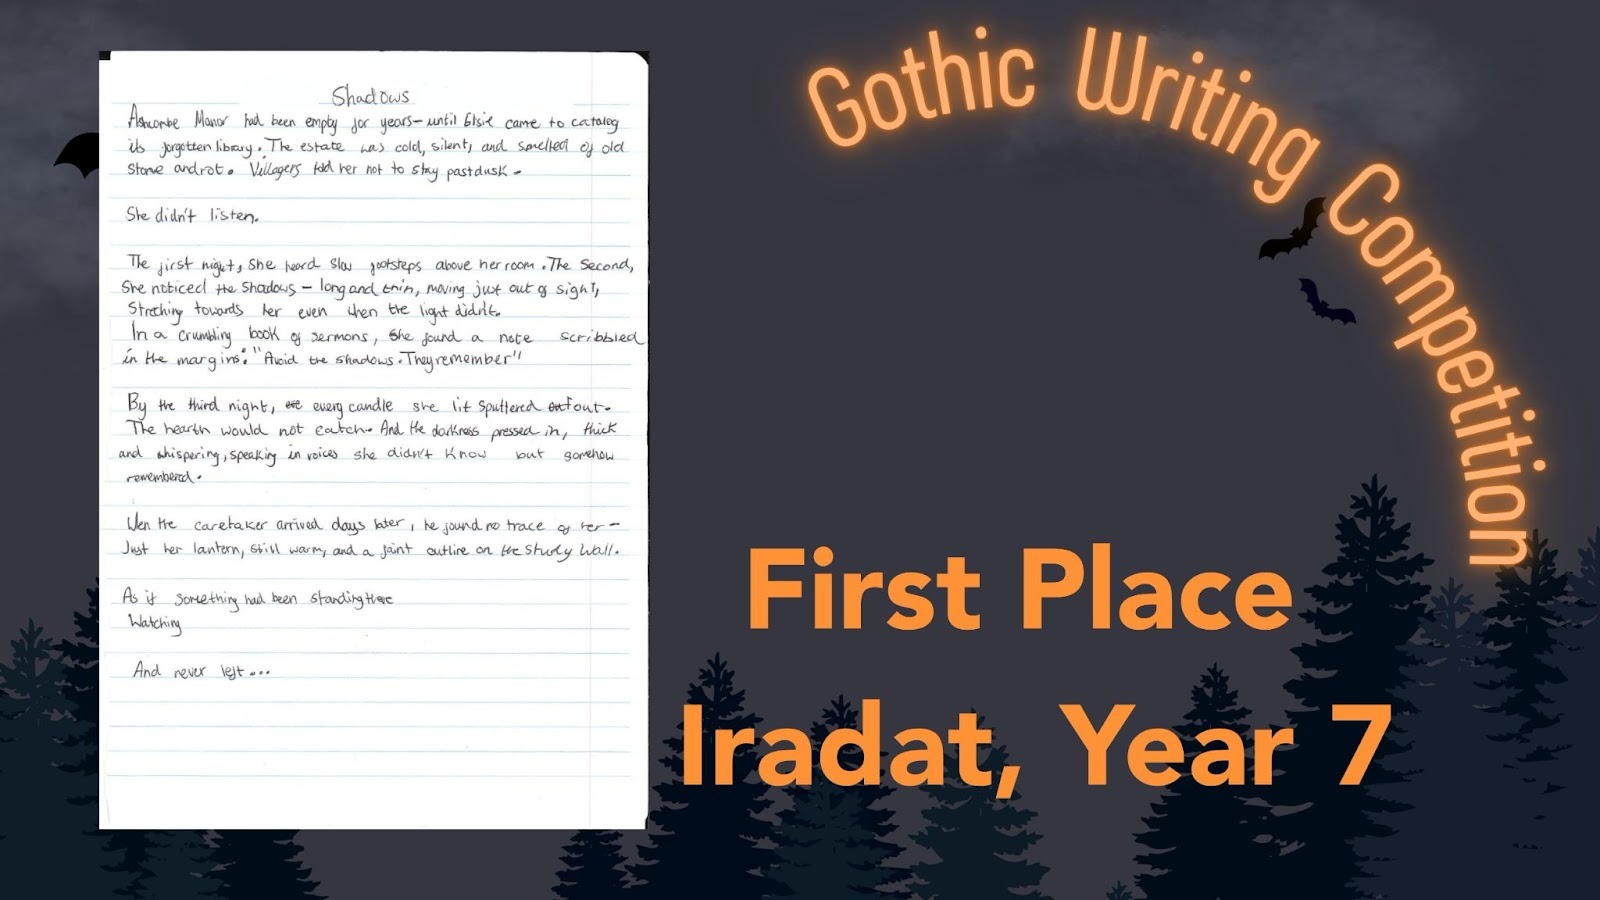 Shadows
Ashcombe Manor had been empty for years – until Elsie came to catalog
its forgotten library. The estate was cold, silent, and smelled of old
stone and rot. Villagers told her not to stay past dusk.
She didn't listen.
The first night, she heard slow footsteps above her room. The second,
she noticed the shadows – long and thin, moving just out of sight,
Streching towards her even when the light didn't.
In a crumbling book of sermons, she found a note scribbled
in the margins: "Avoid the shadows. They remember"
By the third night, every candle she lit sputtered out.
The hearth would not catch. And the darkness pressed in, thick
and whispering, speaking in voices she didn't know but somehow
remembered.
Wen the caretaker arrived days later, he found no trace of her –
Just her lantern, still warm, and a faint outline on the study wall.
As if something had been standing there
Watching
And never left...
Gothic Writing Competition
First Place
Iradat, Year 7